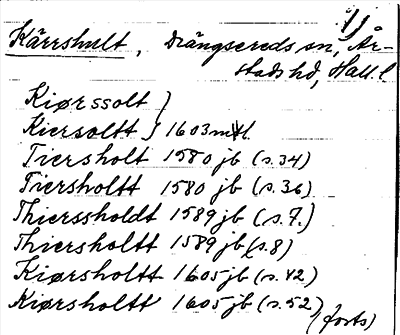 1)
Kärrshult, Drängsereds sn, År-
stads hd, Hall. l
Kiørssolt }
Kiersoltt } 1603 mtl
Tiersholt 1580 jb (s.34)
Tiersholtt 1580 jb (s.36)
Thierssholdt 1589 jb (s.7.)
Thiersholtt 1589 jb (s.8)
Kiørsholtt 1605 jb (s.42)
Kiørsholtt 1605 jb (s.52)
(forts)